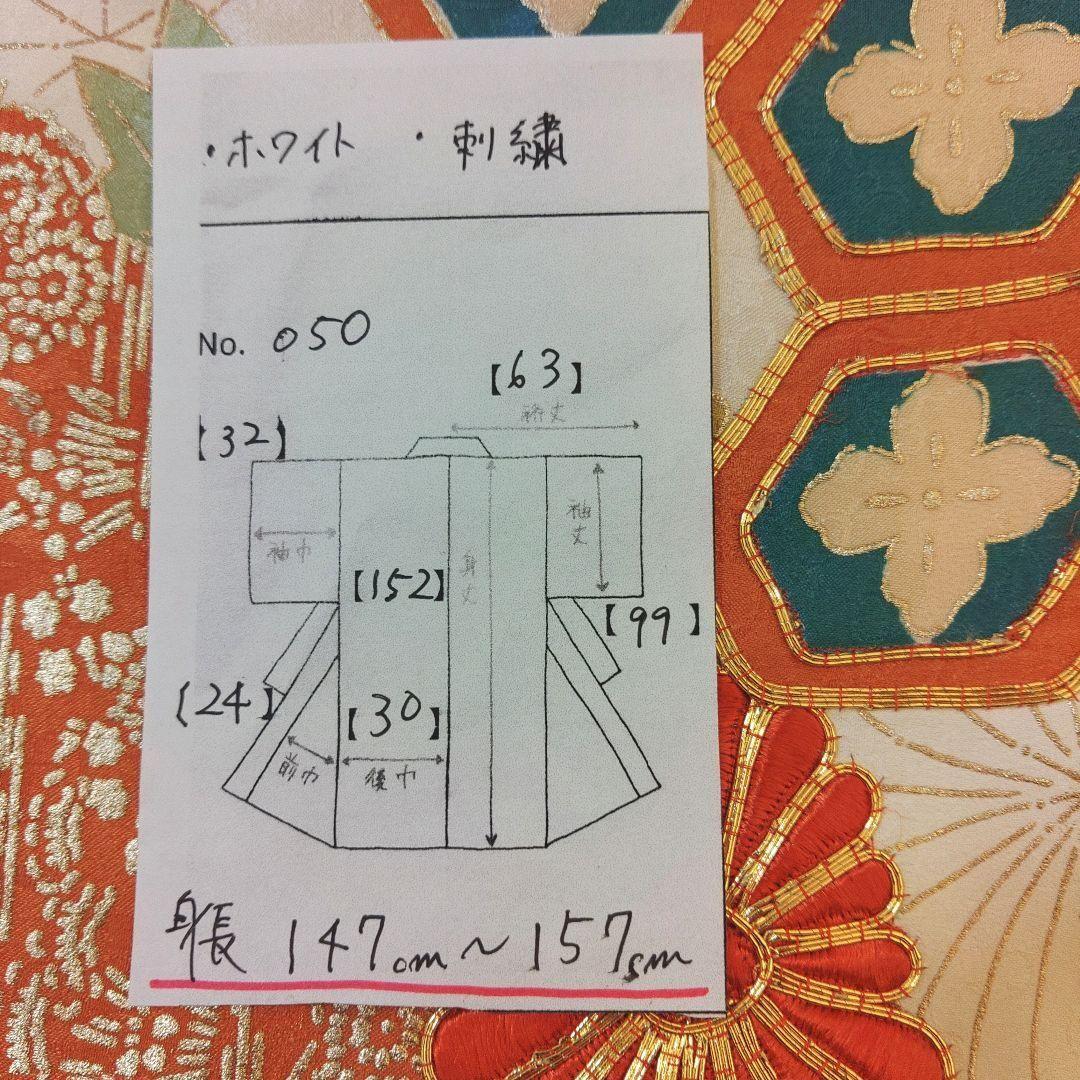 ・ホワイト ・刺繍
No. 050
【63】
裄丈
【32】
袖巾
袖丈
身丈
【152】
【99】
【24】
【30】
前巾
後巾
身長 147cm～157cm